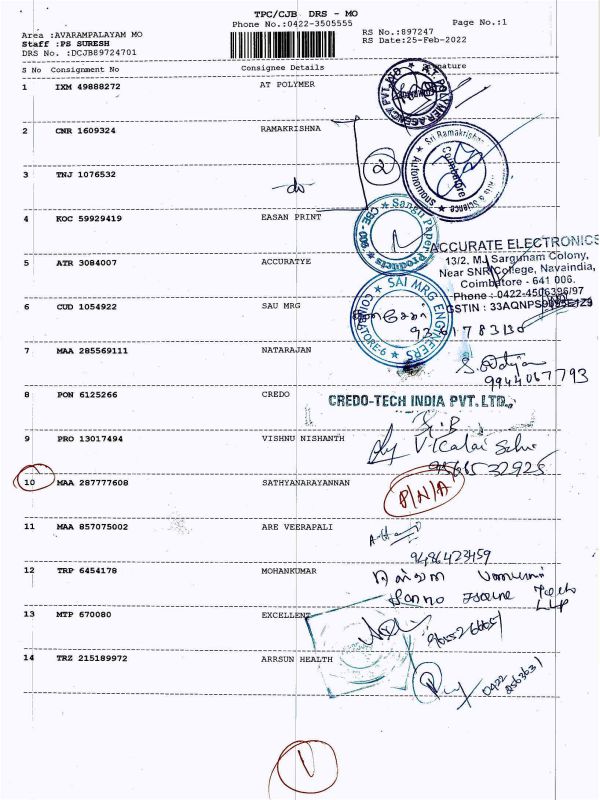 TPC/CJB DRS - MO
Phone No.:0422-3505555
Page No.:1
Area :AVARAMPALAYAM MO
RS No.:897247
Staff :PS SURESH
RS Date:25-Feb-2022
DRS No. :DCJBE9724701
S No Consignment No Consignee Details Signature
1 IXM 49888272 AT POLYMER
A.T. POLYMER AGENCY PVT.LTD
2 CNR 1609324 RAMAKRISHNA
2
Sri Ramakrishna Arts & Science Autonomous
Coimbatore
3 TNJ 1076532 -do-
4 KOC 59929419 EASAN PRINT
Sangu Paper Products
5 ATR 3084007 ACCURATYE
ACCURATE ELECTRONICS
13/2, M.J Sargunam Colony,
Near SNR College, Navaindia,
Coimbatore - 641 006.
Phone : 0422-4506396/97
GSTIN : 33AQNPS
6 CUD 1054922 SAU MRG
SAI MRG ENGINEERS
COIMBATORE-6
7 MAA 285569111 NATARAJAN
9944067793
8 PON 6125266 CREDO
CREDO-TECH INDIA PVT. LTD.,
9 PRO 13017494 VISHNU NISHANTH
V-Kalai Selvi
10 MAA 287777608 SATHYANARAYANNAN
P/N/A
11 MAA 857075002 ARE VEERAPALI
9486423459
12 TRP 6454178 MOHANKUMAR
LLP
13 MTP 670080 EXCELLENT
14 TRZ 215189972 ARRSUN HEALTH
0422
1